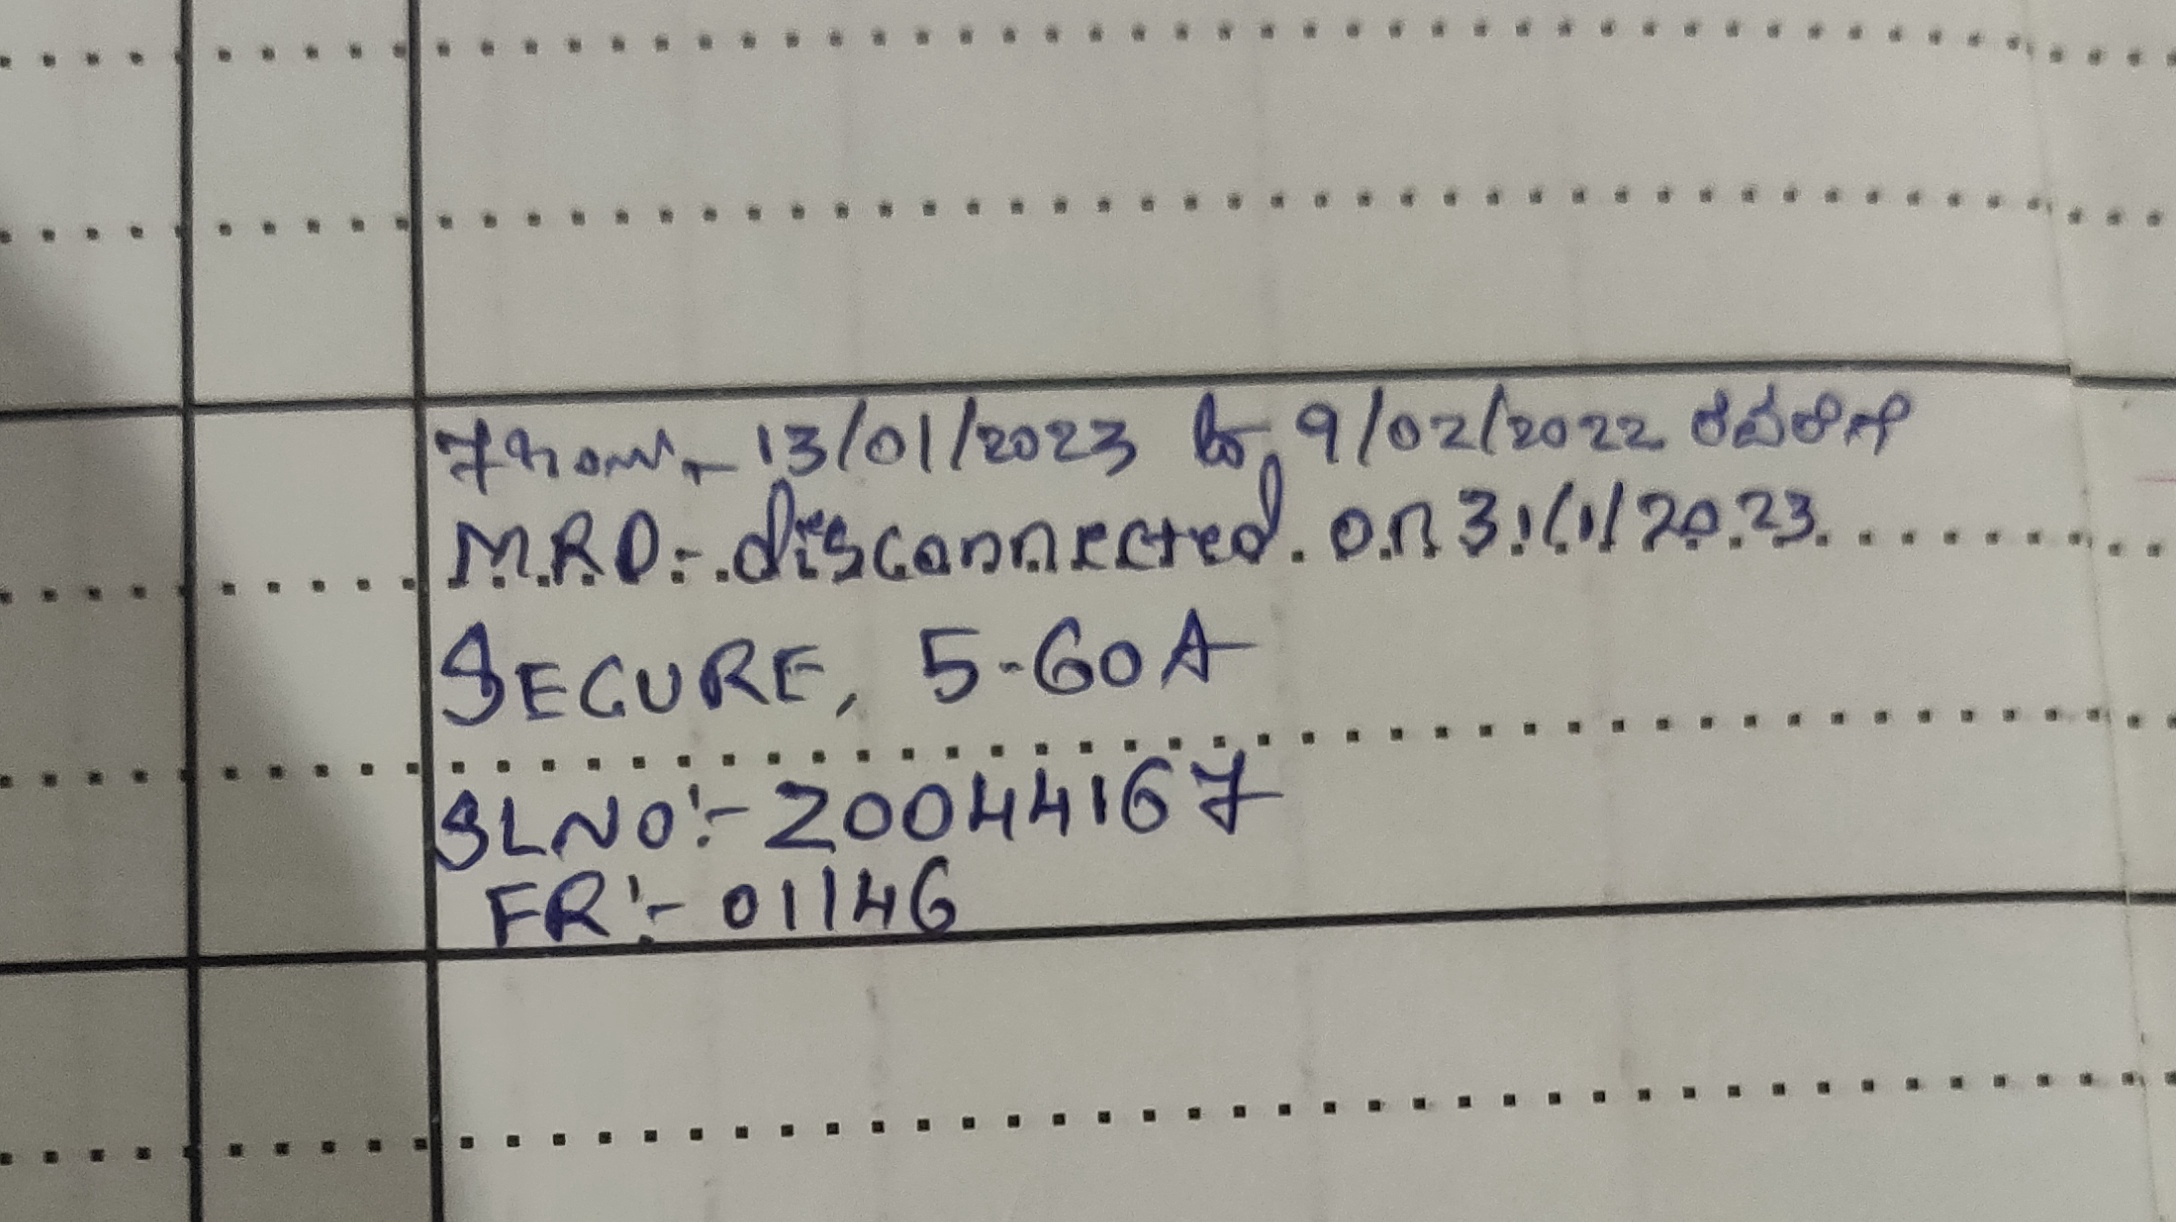 From - 13/01/2023 to 9/02/2022 ರವರೆಗೆ
M.R.D:- disconnected on 31/1/2023
SECURE, 5-60A
SLNO:- 20044167
FR:- 01146